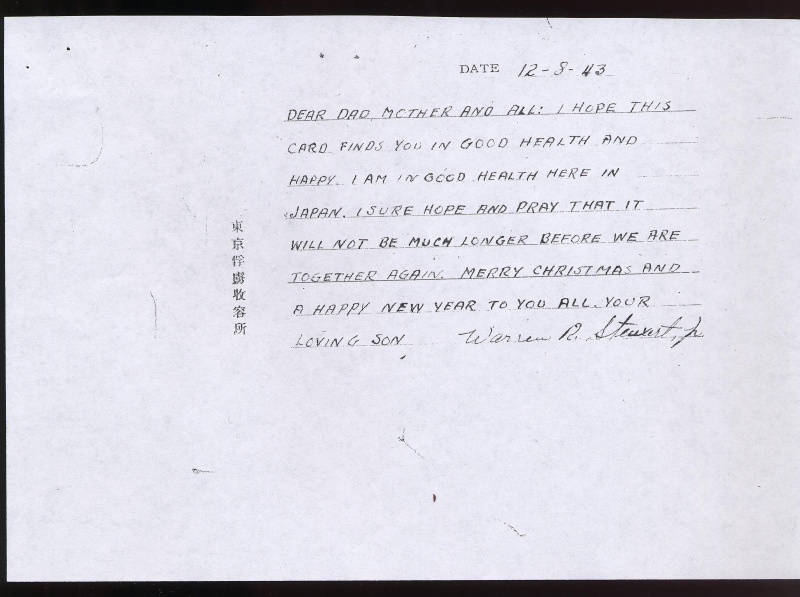 DATE 12-8-43
DEAR DAD, MOTHER AND ALL: I HOPE THIS
CARD FINDS YOU IN GOOD HEALTH AND
HAPPY. I AM IN GOOD HEALTH HERE IN
JAPAN. I SURE HOPE AND PRAY THAT IT
WILL NOT BE MUCH LONGER BEFORE WE ARE
TOGETHER AGAIN. MERRY CHRISTMAS AND
A HAPPY NEW YEAR TO YOU ALL. YOUR
LOVING SON Warren R. Stewart, Jr
東京俘虜收容所